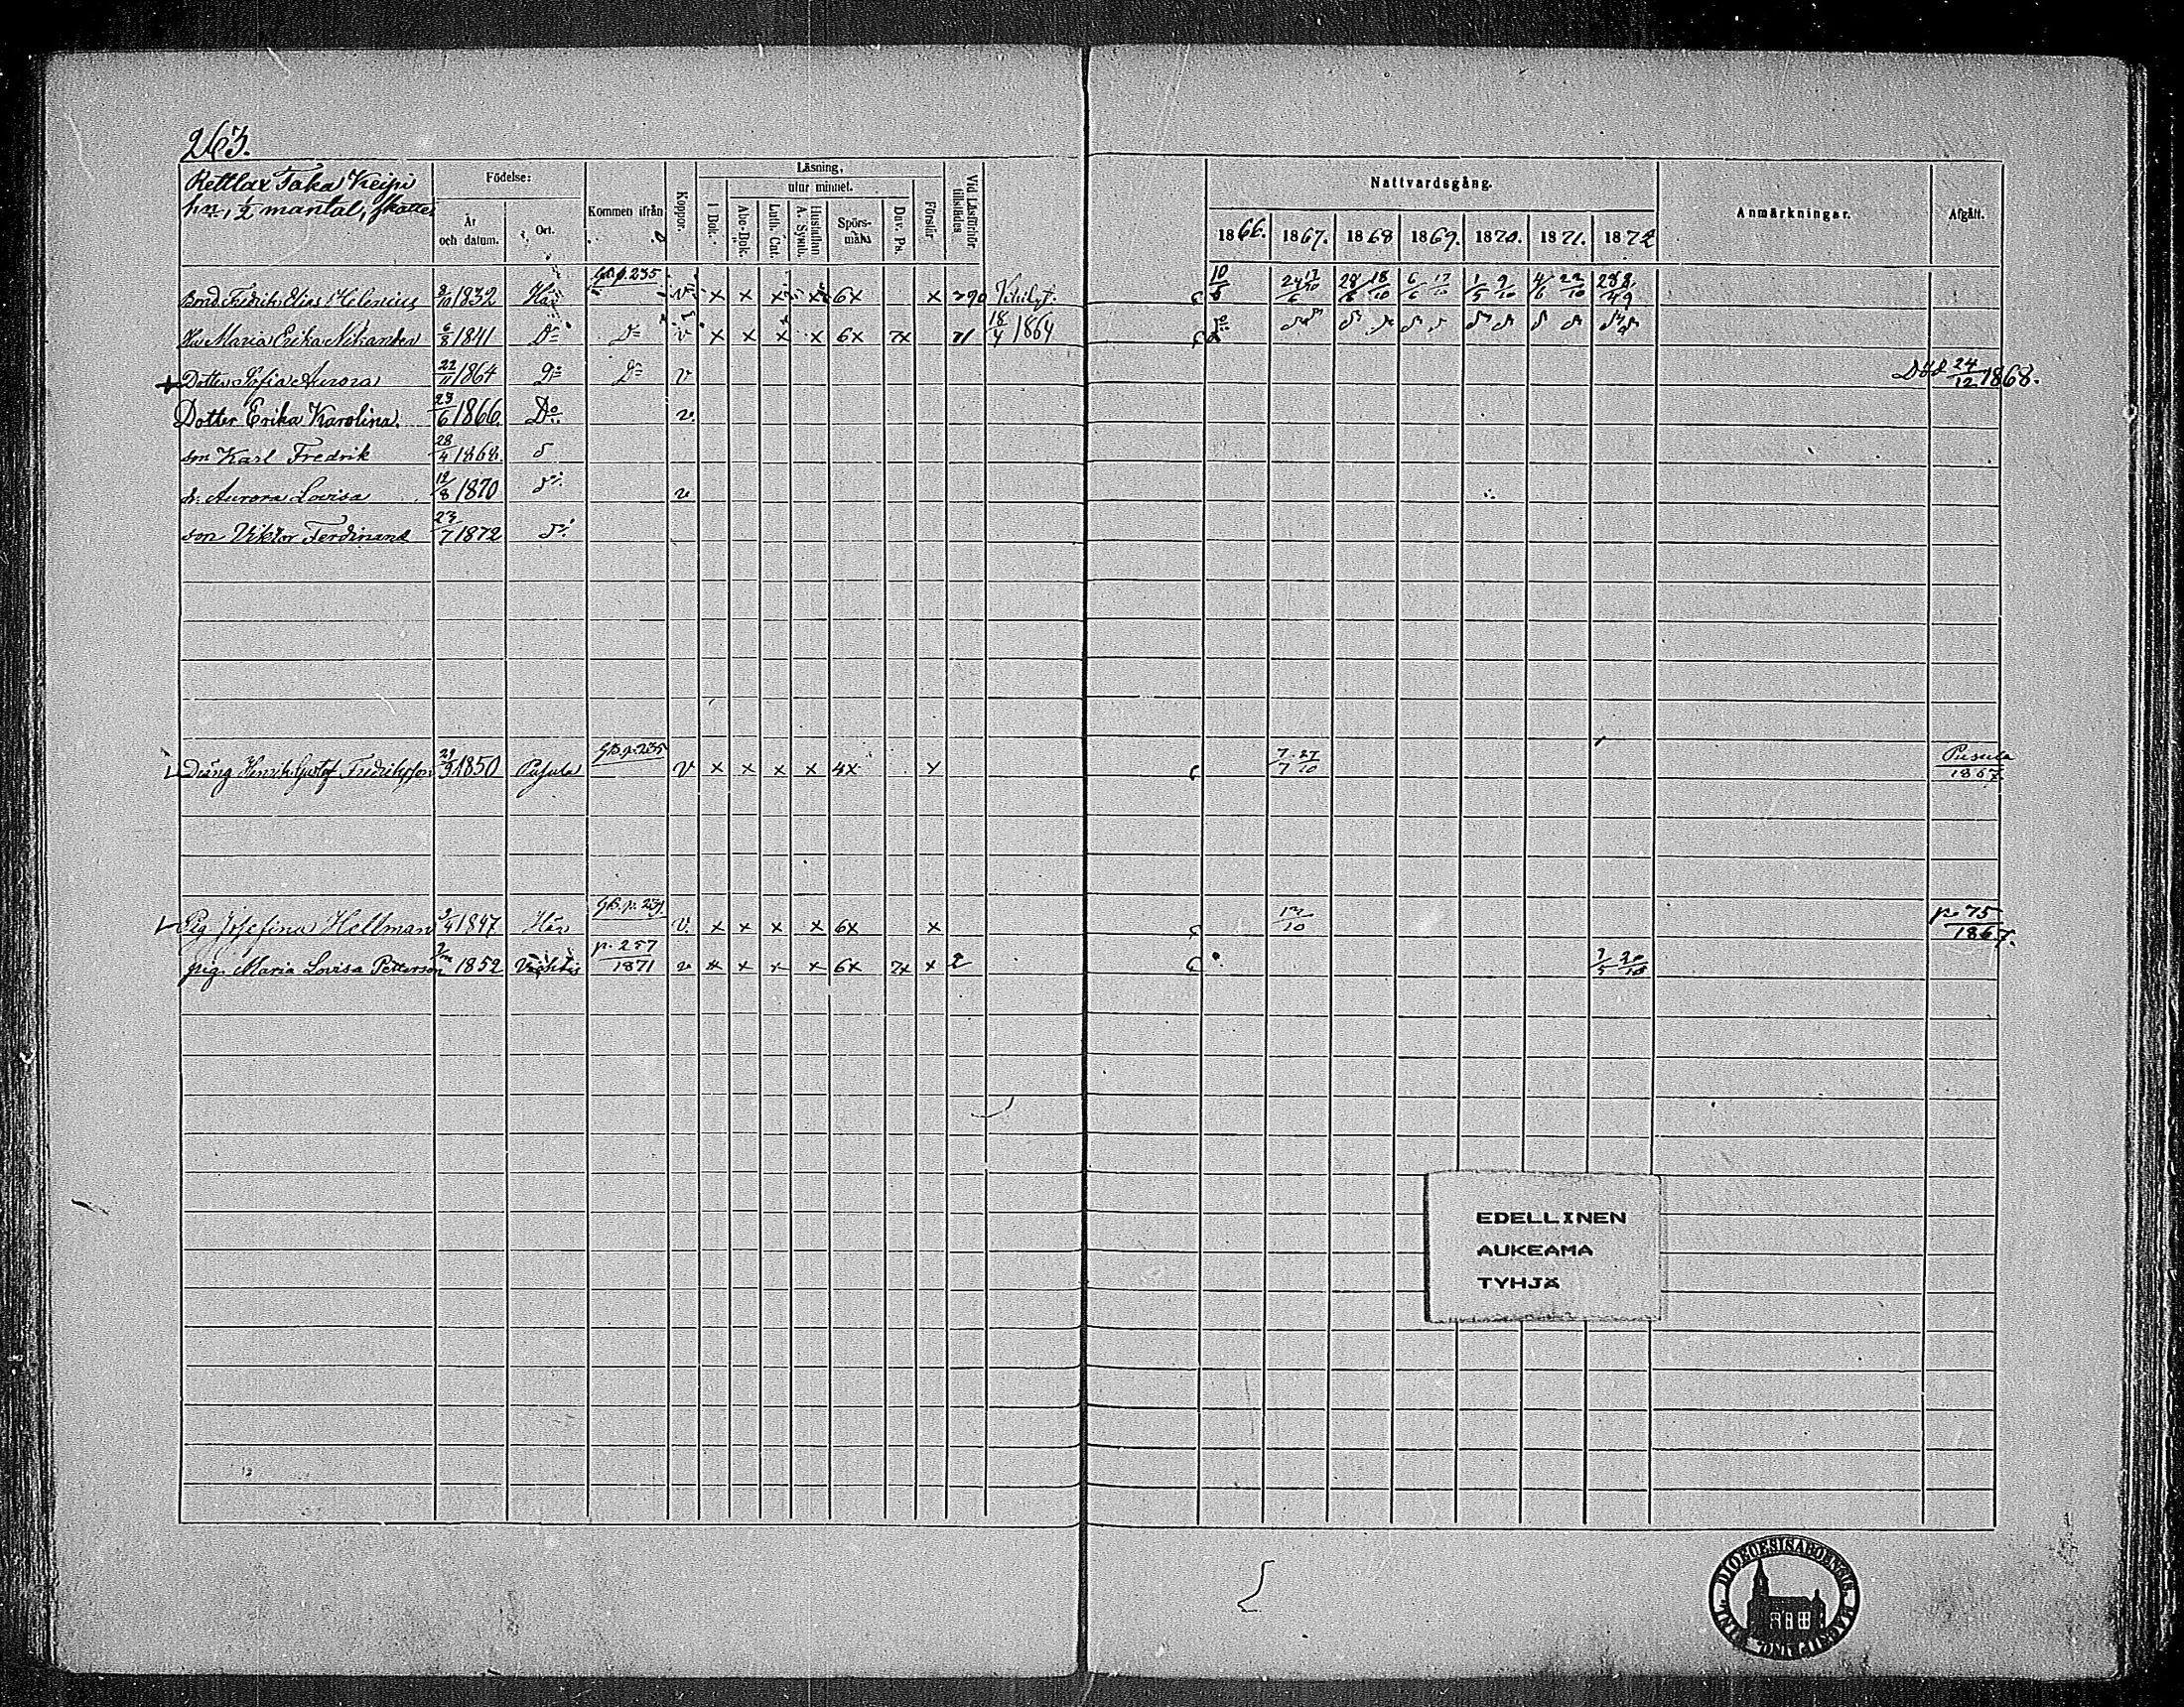 263.
Rettlax Taka Keipi
hn, 1/2 mantal, skatte
Födelse:
År
och datum.
Ort.
Kommen ifrån
Koppor.
Läsning,
utur minnet.
I Bok.
Abc-Bok.
Luth. Cat.
Hustaflan
A. Symb.
Spörs-
måhl
Dav. Ps.
Förstår
Vid Läsförhör
tillstädes
Nattvardsgång.
1866. 1867. 1868 1869. 1870. 1871. 1872
Anmärkningar.
Afgått.
Bond. Fredrik Elias Helenius 8/10 1832 Här Gb. p. 235 v x x x x 6x x 10/6 28/6 18/10 6/6 17/10 1/5 9/10 4/6 22/10
Hu Maria Erika Nikander 6/8 1841 Do Do v x x x x 6x 7x 71 18/4 1864
+ Dotter Sofia Aurora 22/11 1864 Do Do v Död 24/12 1868.
Dotter Erika Karolina. 23/6 1866. Do v.
son Karl Fredrik 28/4 1868.
d. Aurora Lovisa 12/8 1870 v
son Viktor Ferdinand 23/7 1872
Dräng Henrik Gustaf Fredriksson 29/9 1850 Pusula Gb. p. 235 v x x x x 4x x 7/7 27/10 Pusula 1867
Pig Josefina Hellman 1847 Här v. x x x x 6x x 13/10 p. 75 1867.
pig. Maria Lovisa Petterson 1852 Vichtis p. 257 1871 v x x x x 6x 7x x 2 20/10
EDELLINEN
AUKEAMA
TYHJÄ